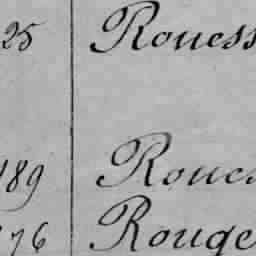 25 Rouess
189 Roues
176 Rouge